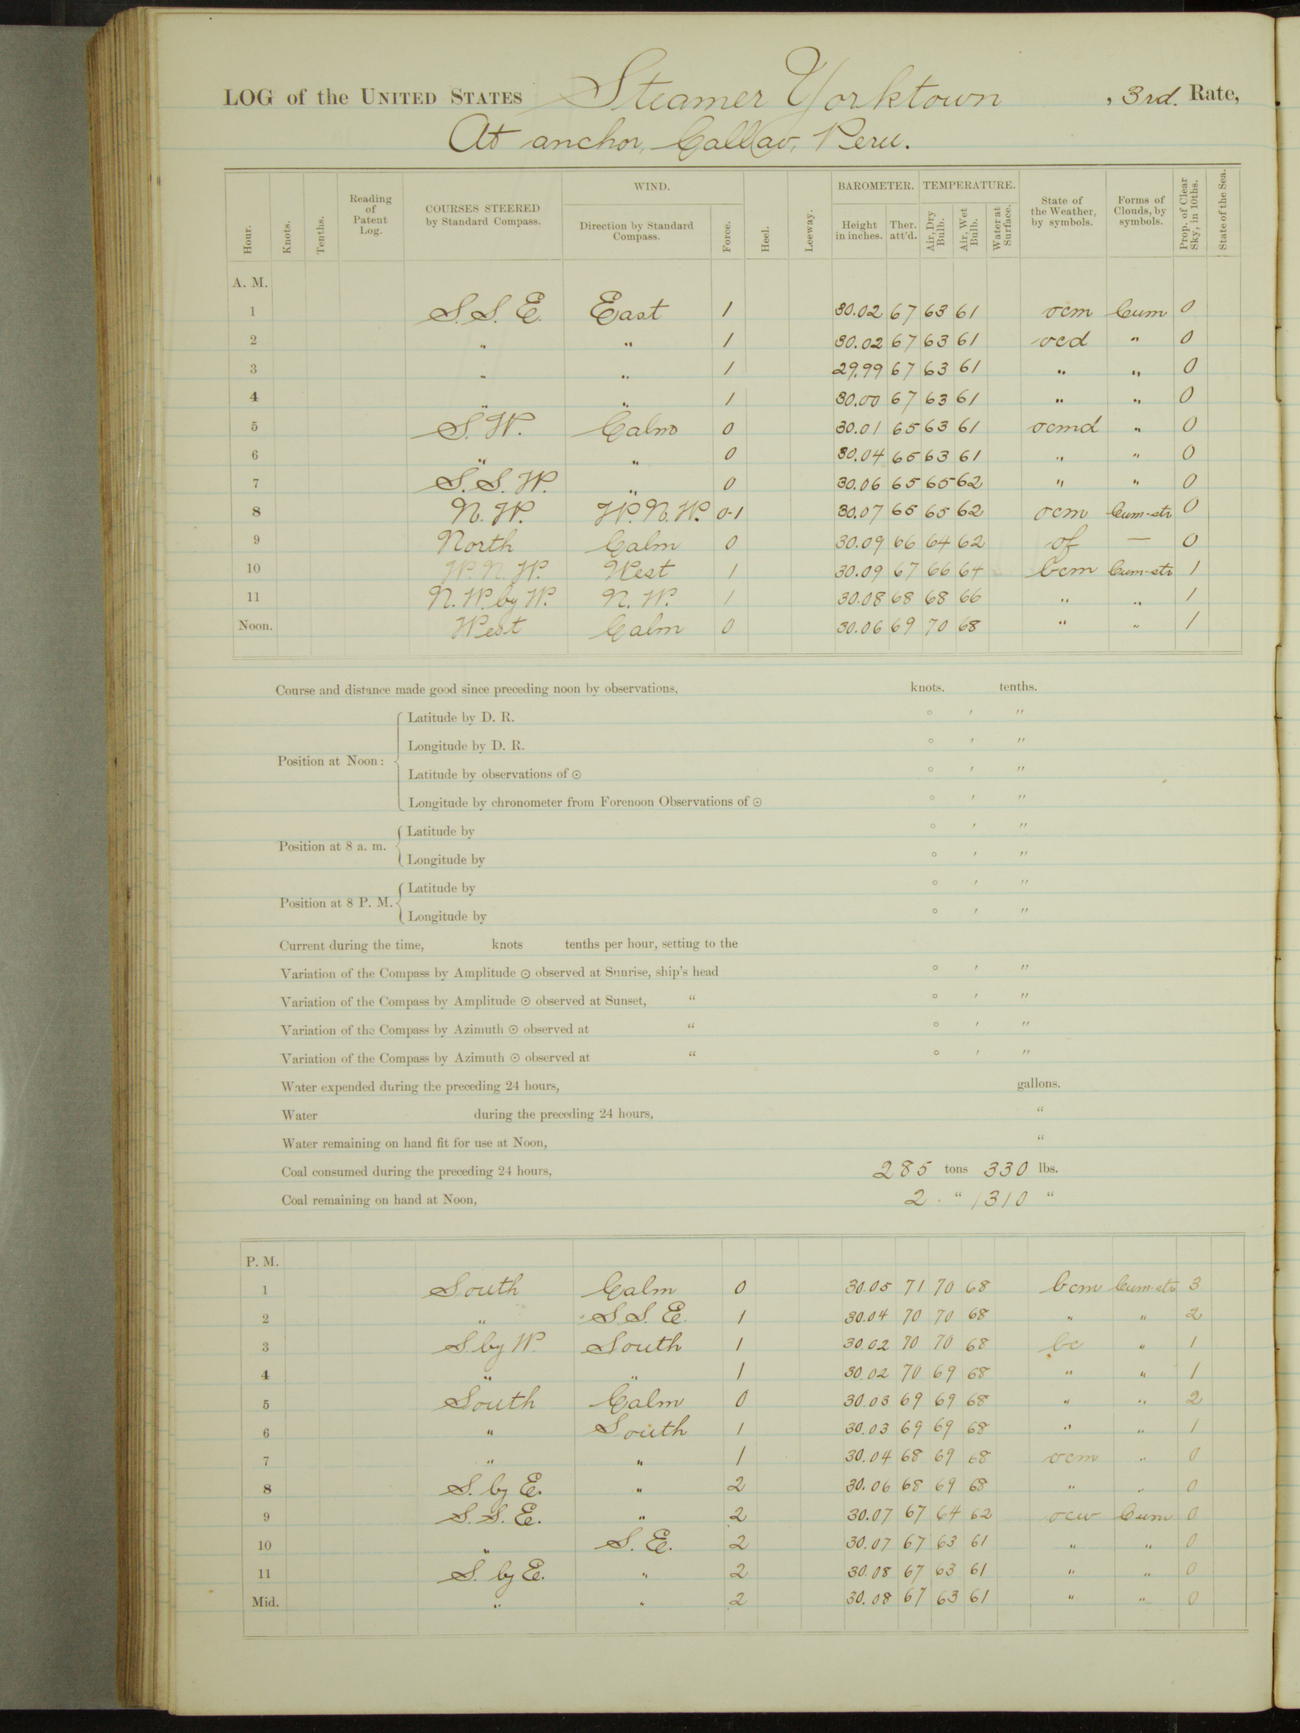 LOG of the UNITED STATES Steamer Yorktown , 3rd. Rate,
At anchor, Callao, Peru.
Hour. Knots. Tenths. Reading of Patent Log. COURSES STEERED by Standard Compass. WIND. Direction by Standard Compass. Force. Heel. Leeway. BAROMETER. Height in inches. Ther. att'd. TEMPERATURE. Air, Dry Bulb. Air, Wet Bulb. Water at Surface. State of the Weather, by symbols. Forms of Clouds, by symbols. Prop. of Clear Sky, in 10ths. State of the Sea.
A. M.
1 S.S.E. East 1 30.02 67 63 61 ocm Cum 0
2 " " 1 30.02 67 63 61 ocd " 0
3 " " 1 29.99 67 63 61 " " 0
4 " " 1 30.00 67 63 61 " " 0
5 S.W. Calm 0 30.01 65 63 61 ocmd " 0
6 " " 0 30.04 65 63 61 " " 0
7 S.S.W. " 0 30.06 65 65 62 " " 0
8 N.W. W.N.W. 0-1 30.07 65 65 62 ocm Cum-str 0
9 North Calm 0 30.09 66 64 62 of — 0
10 W.N.W. West 1 30.09 67 66 64 bcm Cum-str 1
11 N.W. by W. N.W. 1 30.08 68 68 66 " " 1
Noon. West Calm 0 30.06 69 70 68 " " 1
Course and distance made good since preceding noon by observations, knots. tenths.
Position at Noon:
Latitude by D. R. ° ′ ″
Longitude by D. R. ° ′ ″
Latitude by observations of ☉ ° ′ ″
Longitude by chronometer from Forenoon Observations of ☉ ° ′ ″
Position at 8 a. m.
Latitude by ° ′ ″
Longitude by ° ′ ″
Position at 8 P. M.
Latitude by ° ′ ″
Longitude by ° ′ ″
Current during the time, knots tenths per hour, setting to the
Variation of the Compass by Amplitude ☉ observed at Sunrise, ship's head ° ′ ″
Variation of the Compass by Amplitude ☉ observed at Sunset, " ° ′ ″
Variation of the Compass by Azimuth ☉ observed at " ° ′ ″
Variation of the Compass by Azimuth ☉ observed at " ° ′ ″
Water expended during the preceding 24 hours, gallons.
Water during the preceding 24 hours, "
Water remaining on hand fit for use at Noon, "
Coal consumed during the preceding 24 hours, 285 tons 330 lbs.
Coal remaining on hand at Noon, 2 " 1310 "
P. M.
1 South Calm 0 30.05 71 70 68 bcm Cum-str 3
2 " S.S.E. 1 30.04 70 70 68 " " 2
3 S. by W. South 1 30.02 70 70 68 bc " 1
4 " " 1 30.02 70 69 68 " " 1
5 South Calm 0 30.03 69 69 68 " " 2
6 " South 1 30.03 69 69 68 " " 1
7 " " 1 30.04 68 69 68 ocm " 0
8 S. by E. " 2 30.06 68 69 68 " " 0
9 S.S.E. " 2 30.07 67 64 62 ocw Cum 0
10 " S.E. 2 30.07 67 63 61 " " 0
11 S. by E. " 2 30.08 67 63 61 " " 0
Mid. " " 2 30.08 67 63 61 " " 0